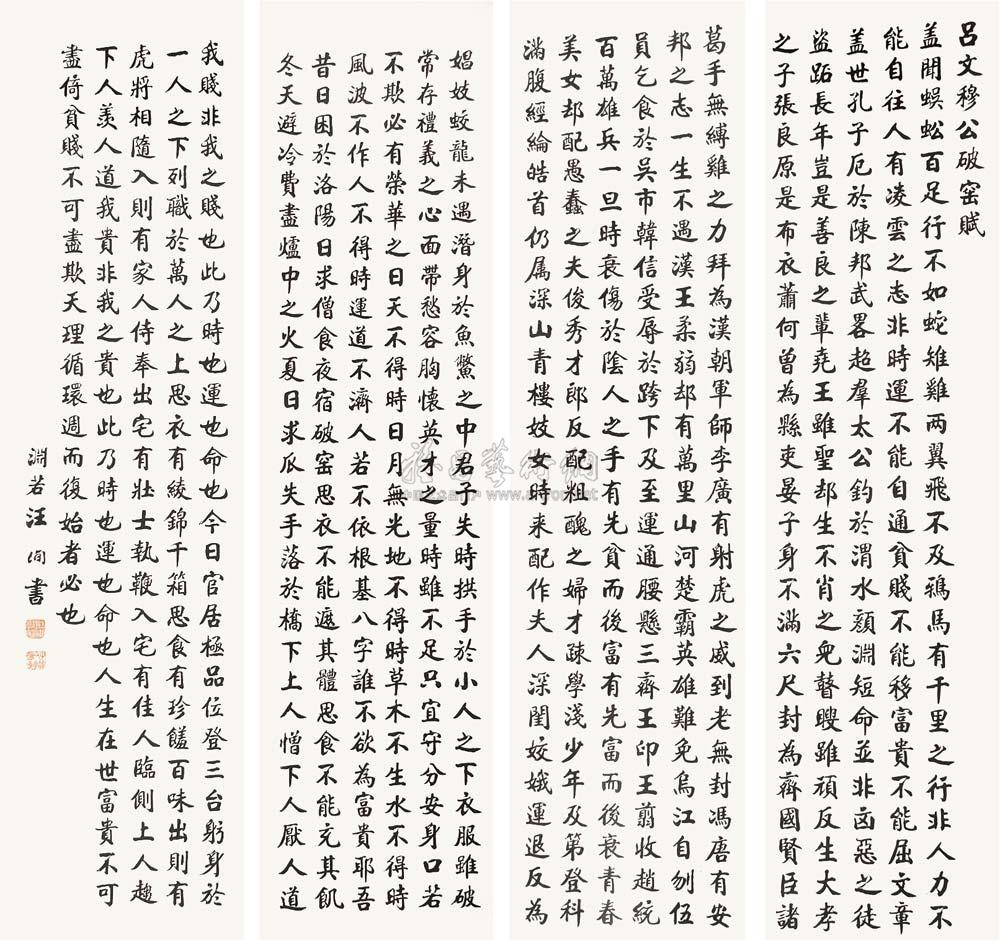 呂文穆公破窑賦
盖聞蜈蚣百足行不如蛇雉雞两翼飛不及鴉馬有千里之行非人力不
能自往人有凌雲之志非時運不能自通貧賤不能移富貴不能屈文章
盖世孔子厄於陳邦武畧超羣太公釣於渭水顔淵短命並非凶惡之徒
盜跖長年豈是善良之輩尭王雖聖却生不肖之兒瞽瞍雖頑反生大孝
之子張良原是布衣蕭何曾為縣吏晏子身不滿六尺封為齊國賢臣諸
葛手無縛雞之力拜為漢朝軍師李廣有射虎之威到老無封馮唐有安
邦之志一生不遇漢王柔弱却有萬里山河楚霸英雄難免烏江自刎伍
員乞食於吳市韓信受辱於跨下及至運通腰懸三齊王印王翦收趙統
百萬雄兵一旦時衰傷於陰人之手有先貧而後富有先富而後衰青春
美女却配愚蠢之夫俊秀才郎反配粗醜之婦才疎學淺少年及第登科
滿腹經綸皓首仍属深山青樓妓女時来配作夫人深閨姣娥運退反為
娼妓蛟龍未遇潛身於魚鱉之中君子失時拱手於小人之下衣服雖破
常存禮義之心面帶愁容胸懷英才之量時雖不足只宜守分安身口若
不欺必有榮華之日天不得時日月無光地不得時草木不生水不得時
風波不作人不得時運道不濟人若不依根基八字誰不欲為富貴耶吾
昔日困於洛陽日求僧食夜宿破窑思衣不能遮其體思食不能充其飢
冬天避冷費盡爐中之火夏日求瓜失手落於橋下上人憎下人厭人道
我賤非我之賤也此乃時也運也命也今日官居極品位登三台躬身於
一人之下列職於萬人之上思衣有綾錦千箱思食有珍饈百味出則有
虎將相隨入則有家人侍奉出宅有壯士執鞭入宅有佳人臨側上人趨
下人羨人道我貴非我之貴也此乃時也運也命也人生在世富貴不可
盡倚貧賤不可盡欺天理循環週而復始者必也
淵若汪洵書